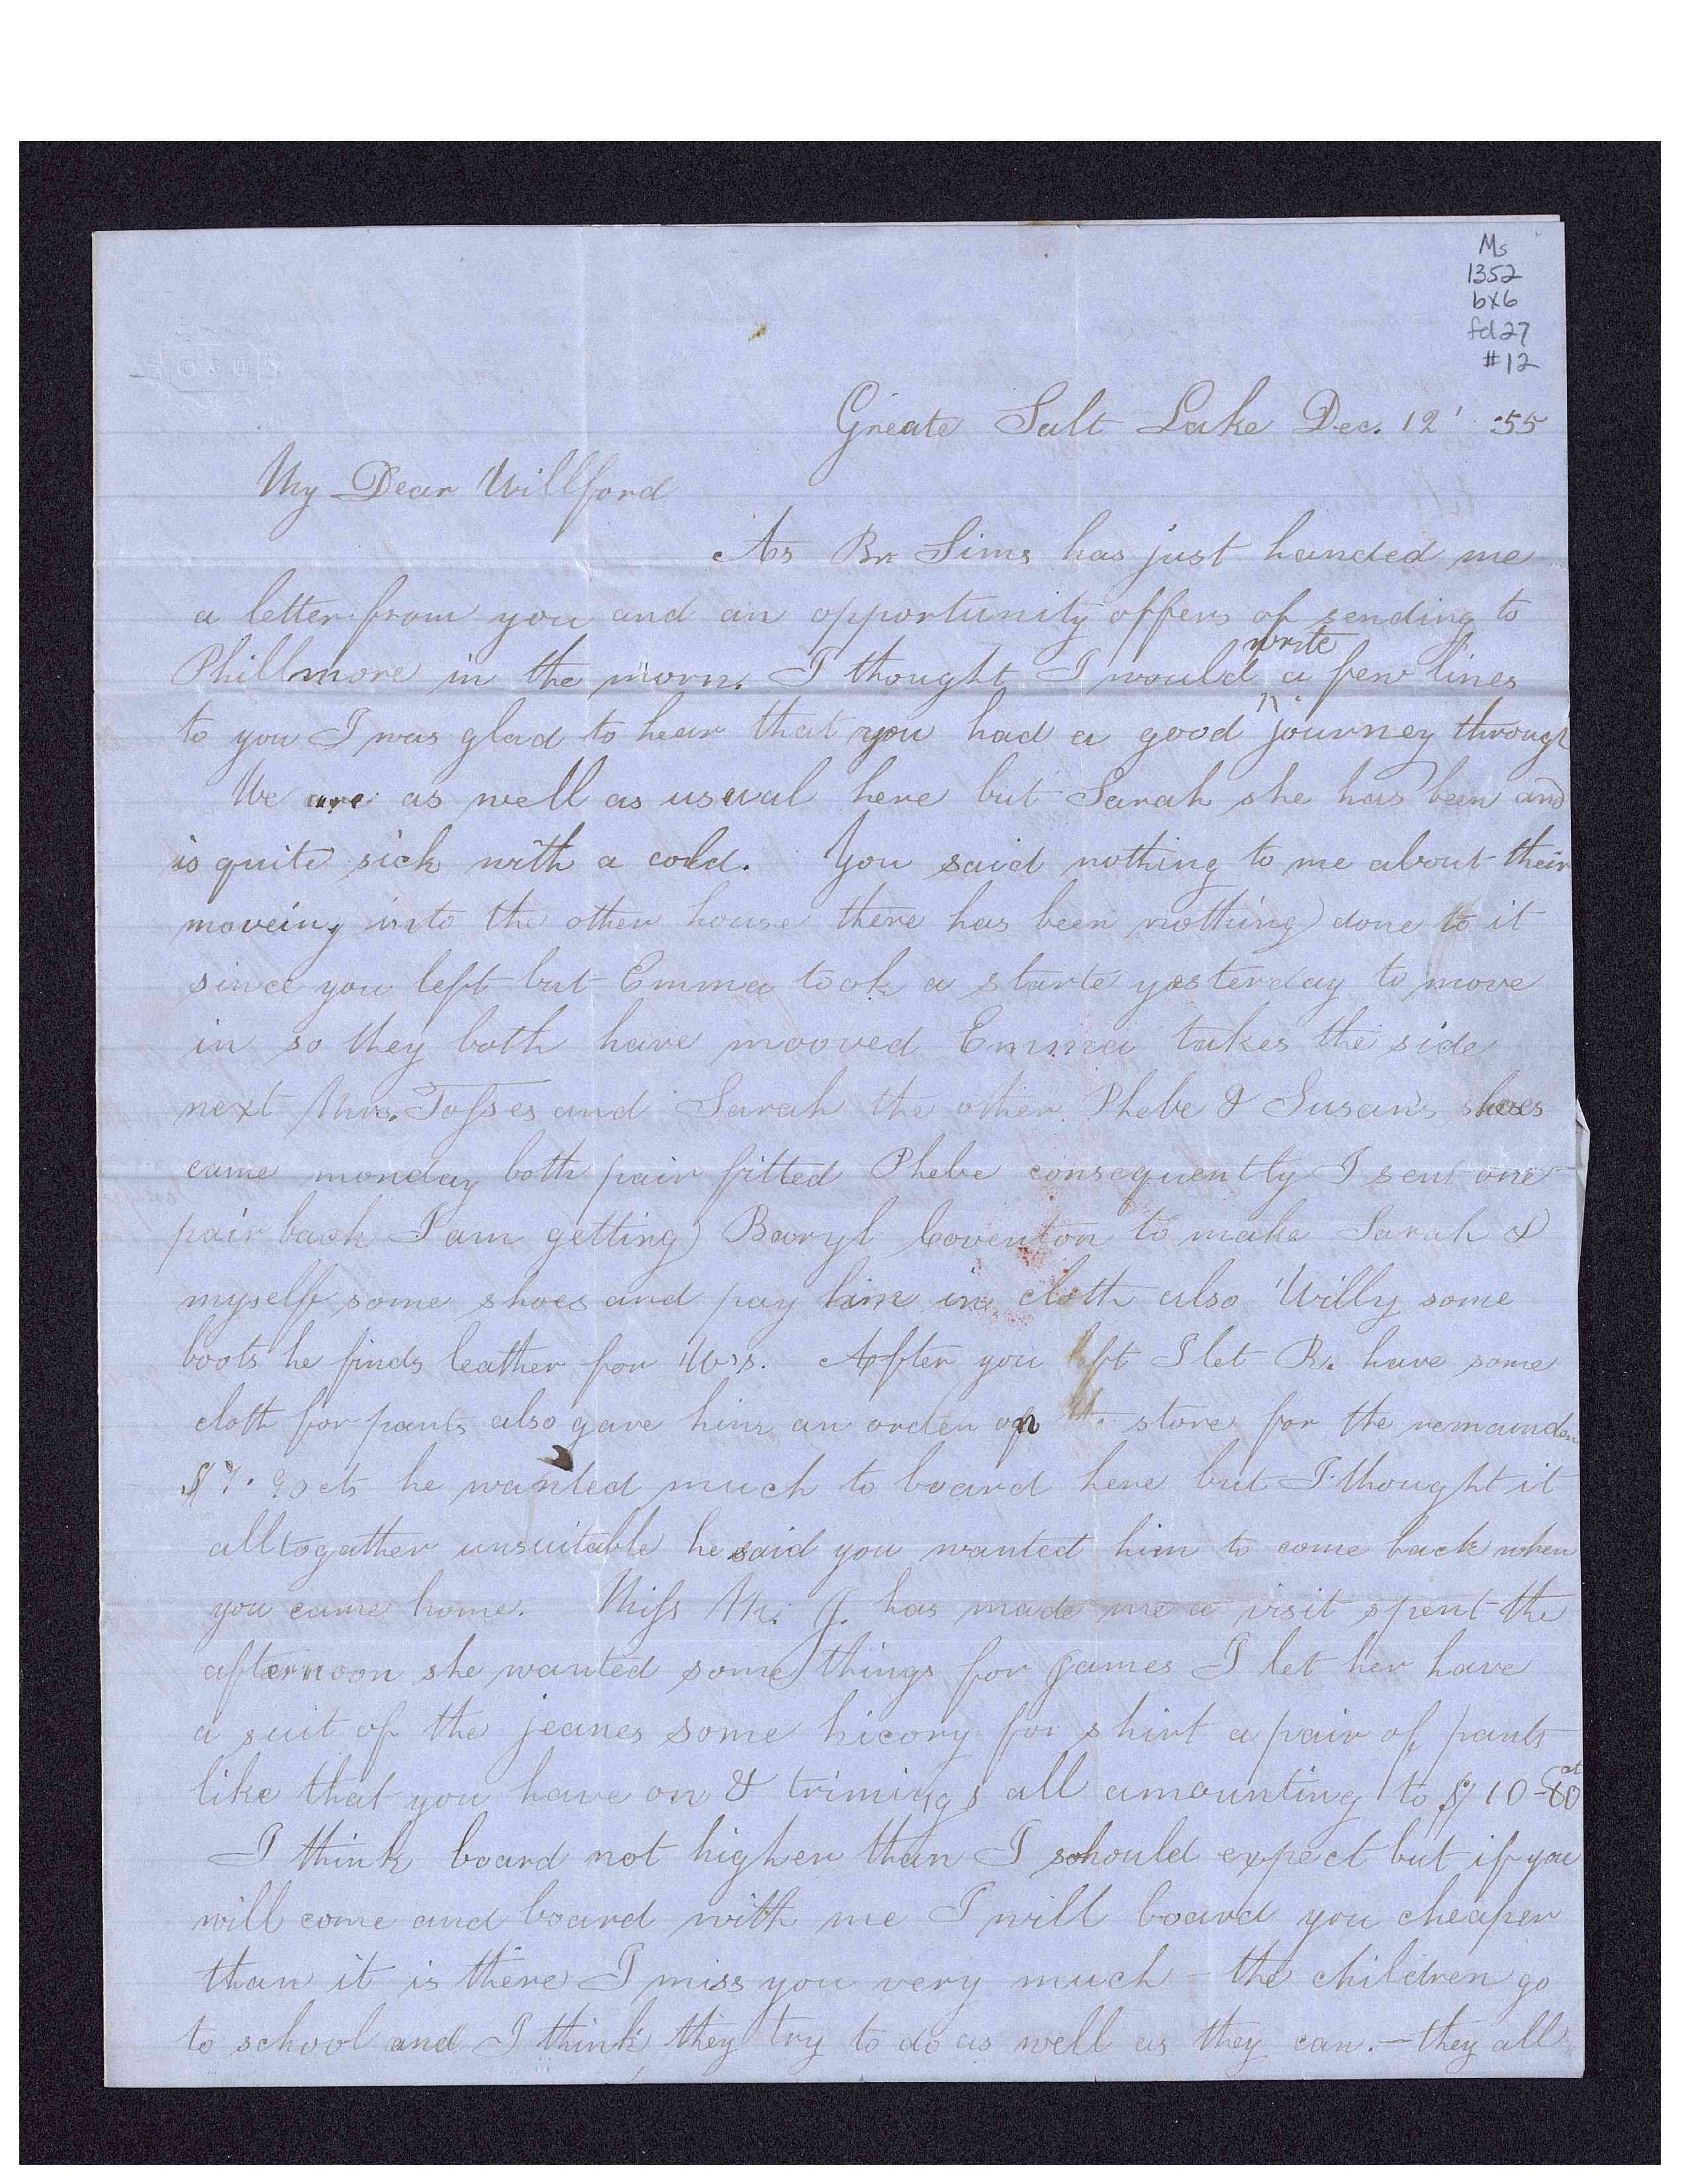 Ms
1352
bx6
fd 27
#12
Greate Salt Lake Dec. 12' .55
My Dear Willford
As Br Sims has just handed me
a letter from you and an opportunity offers of sending to
Phillmore in the morn. I thought I would write a few lines
to you I was glad to hear that you had a good journey through
We are as well as usual here but Sarah she has been and
is quite sick with a cold. You said nothing to me about their
moveing into the other house there has been nothing done to it
since you left but Emma took a starte yesterday to move
in so they both have mooved Emma takes the side
next Mrs. and Sarah the other Phebe & Susan's shoes
came monday both pair fitted Phebe consequently I sent one
pair back I am getting Baryl Coventon to make Sarah &
myself some shoes and pay him in cloth also Willy some
boots he finds leather for W's. After you left I let R. have some
cloth for pants also gave him an order on the store for the remainder
$7. 90 cts he wanted much to board here but I thought it
alltogather unsuitable he said you wanted him to come back when
you came home. Miss M. J. has made me a visit spent the
afternoon she wanted some things for James I let her have
a suit of the jeanes some hicory for shirt a pair of pants
like that you have on & trimings all amounting to $10-80 ct
I think board not higher than I schould expect but if you
will come and board with me I will board you cheaper
than it is there I miss you very much - the children go
to school and I think they try to do as well as they can. - they all